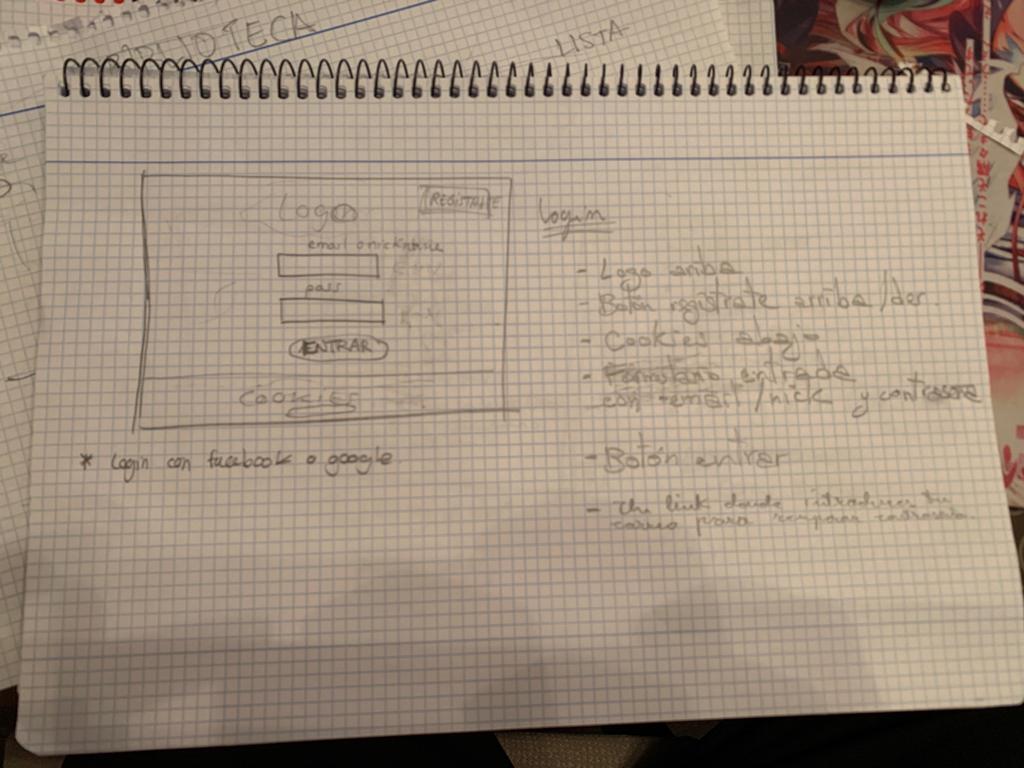 BIBLIOTECA
LISTA
LOGO
REGISTRATE
email o nickname
pass
ENTRAR
COOKIES
* Login con facebook o google
Login
- Logo arriba
- Botón regístrate arriba/der.
- Cookies abajo
- Formulario entrada
con email/nick y contraseña
- Botón entrar
- Un link donde introduces tu
correo para recuperar contraseña.